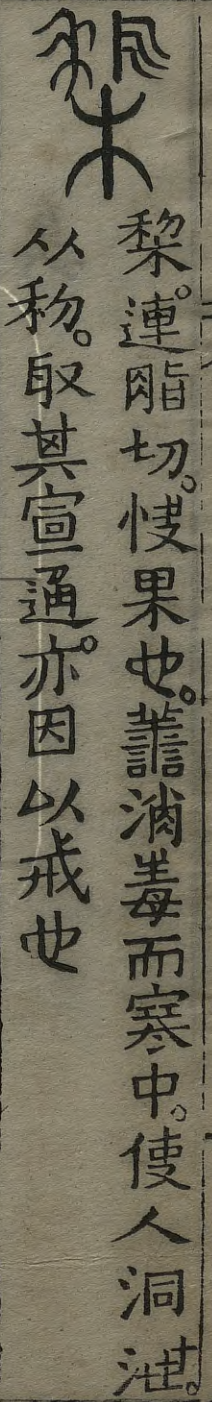 𥠖
𥠖。連脂切。㥰果也。譱消毒而寒中。使人洞泄。
从𥝢。取其宣通。亦因以戒也